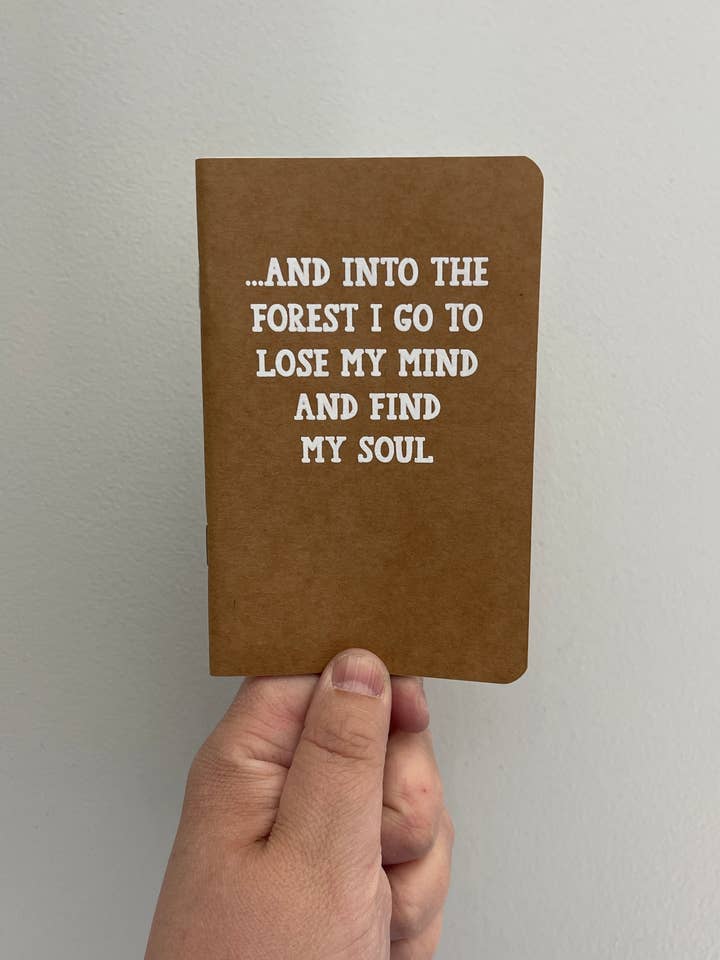 ...AND INTO THE
FOREST I GO TO
LOSE MY MIND
AND FIND
MY SOUL